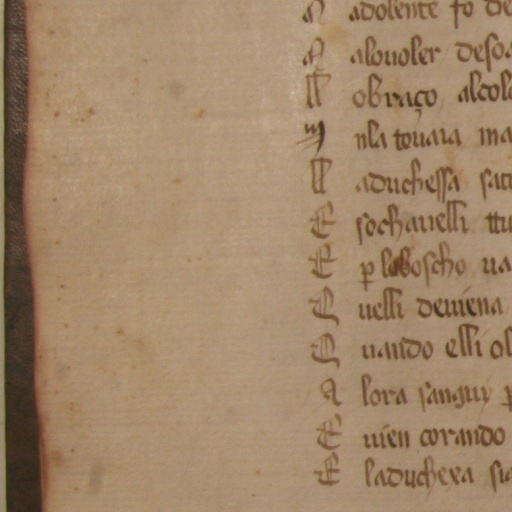 A adolente so de
A alouoler deso
ll obraço alcol
M nla touaia ma
ll aduchessa sat
E sochauelli tu
E p loboscho ua
Q uelli deuiena
Q uando elli ol
A lora sanguy p
E uien corando
E laduchexa sia